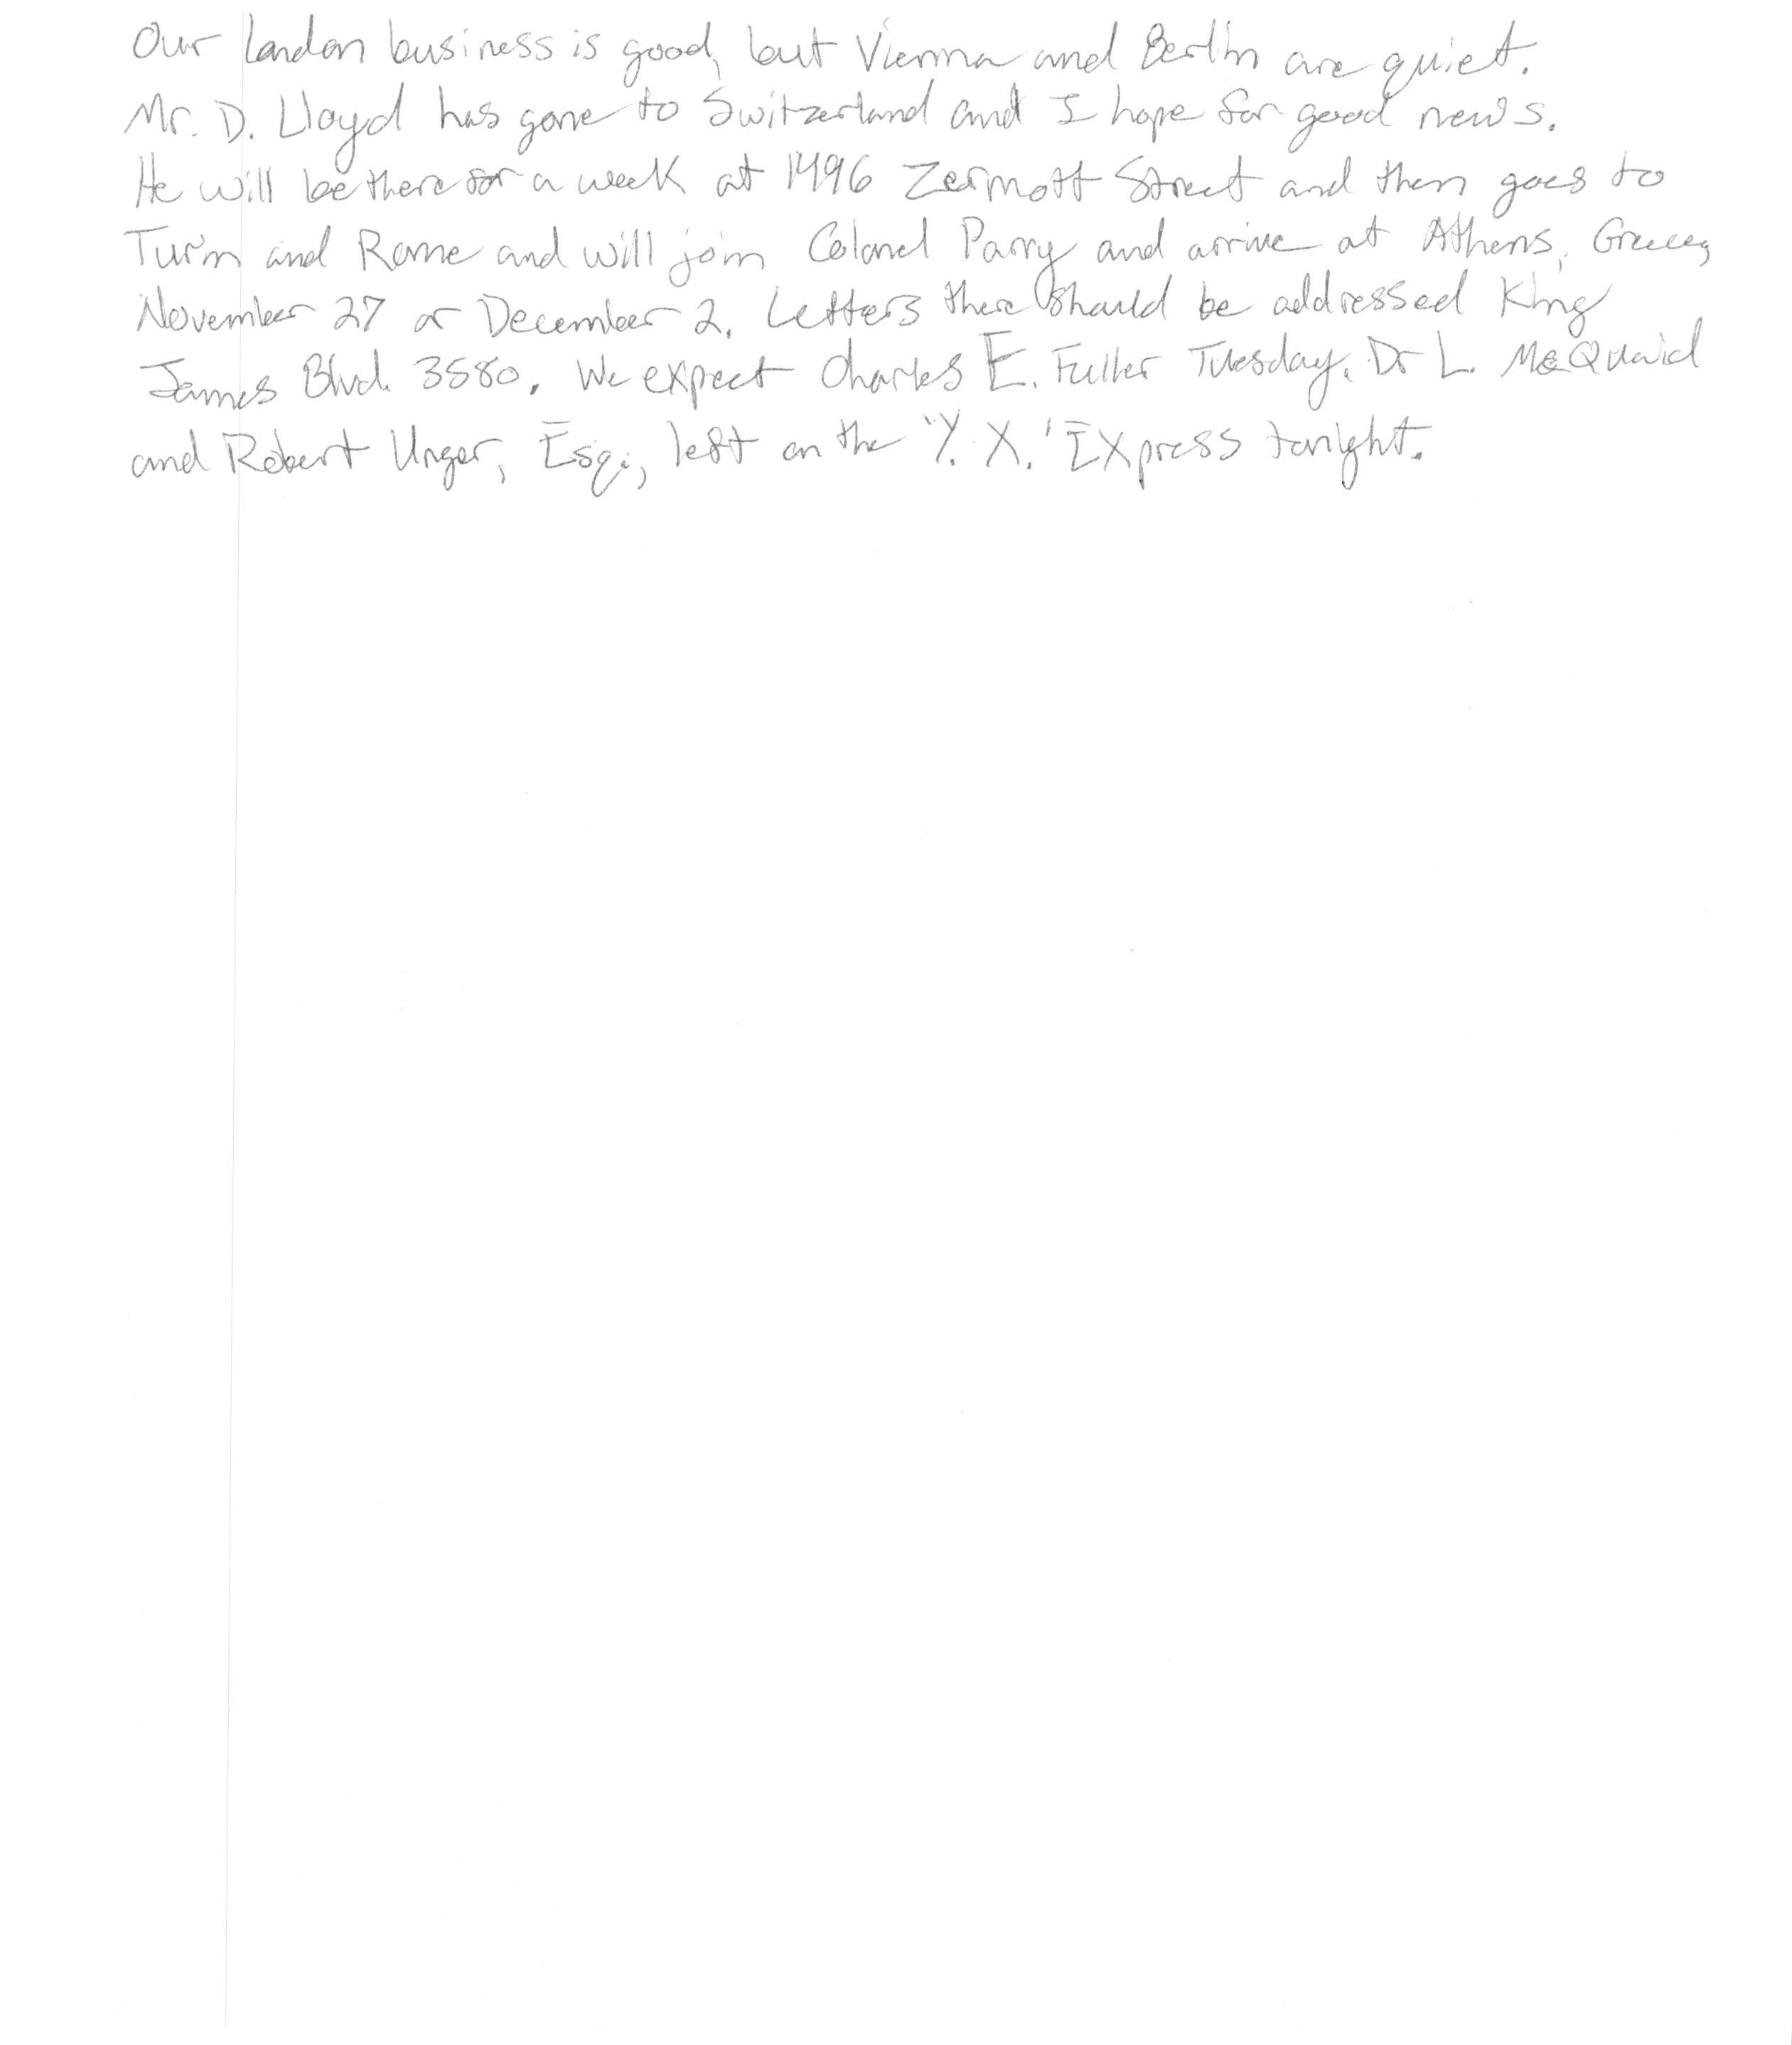 Our London business is good, but Vienna and Berlin are quiet.
Mr. D. Lloyd has gone to Switzerland and I hope for good news.
He will be there for a week at 1496 Zermott Street and then goes to
Turin and Rome and will join Colonel Parry and arrive at Athens, Greece,
November 27 or December 2. Letters there should be addressed King
James Blvd. 3580. We expect Charles E. Fuller Tuesday. Dr L. McQuaid
and Robert Unger, Esq., left on the 'Y. X.' Express tonight.